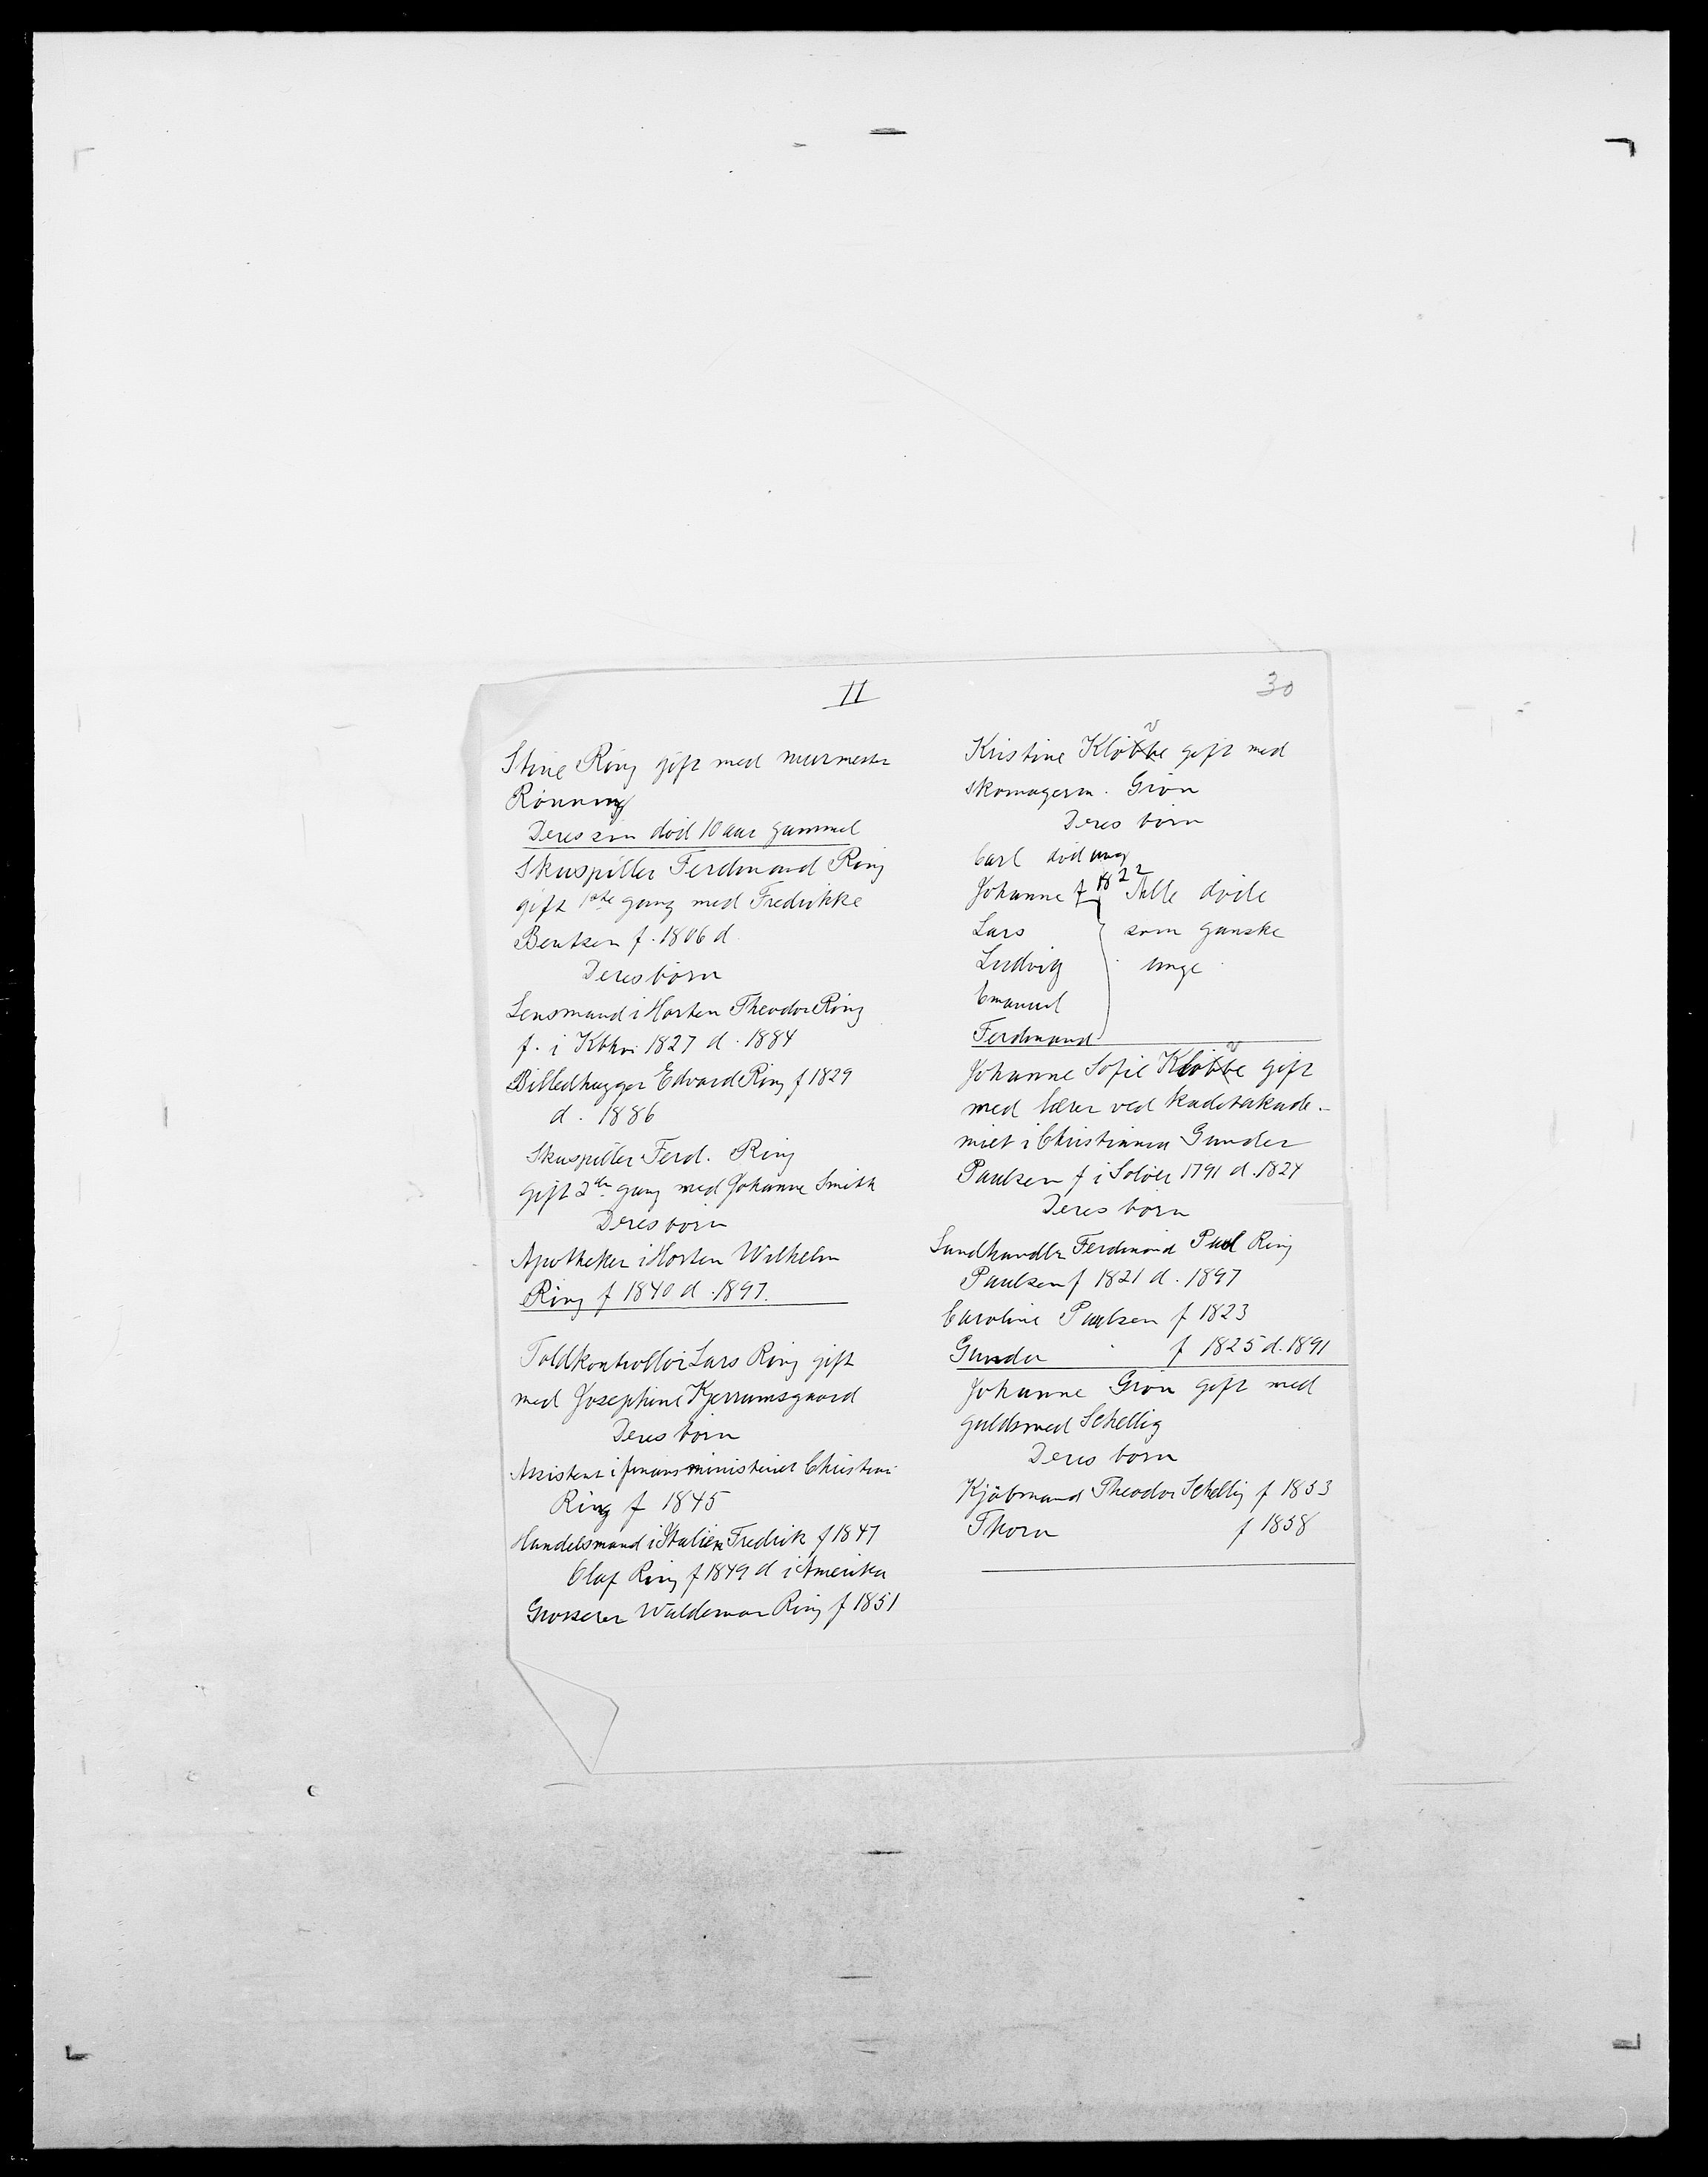 II
30
Stine Ring gift med murmester
Rønning
Deres søn död 10 aar gammel
Skuspiller Ferdinand Ring
gift 1ste gang med Fredrikke
Bentsen f. 1806 d
Deres börn
Lensmand i Horten Theodor Ring
f. i Kbhvn 1827 d. 1884
Billedhugger Edvard Ring f 1829
d. 1886
Skuspiller Ferd. Ring
gift 2den gang med Johanne Smith
Deres börn
Apotheker i Horten Wilhelm
Ring f 1840 d. 1897.
Toldkontrollör Lars Ring gift
med Josephine Kjerrumsgaard
Deres börn
Assistent i finansministeriet Christian
Ring f 1845
Handelsmand i Italien Fredrik f 1847
Olaf Ring f 1849 d i Amerika
Grosserer Waldemar Ring f 1851
Kristine Klöbbe gift med
v
skomagerm. Grön
Deres börn
Carl död ung
Johanne f 1822 Alle döde
Lars som ganske
Ludvig unge
Emanuel
Ferdinand
Johanne Sofie Klöbbe gift
v
med lærer ved kadetakade-
miet i Christiania Gunder
Paulsen f i Solöer 1791 d. 1824
Deres börn
Landhandler Ferdinand Paul Ring
Paulsen f 1821 d. 1897
Caroline Paulsen f 1823
Gunder " f 1825 d. 1891
Johanne Grön gift med
guldsmed Schellig
Deres börn
Kjöbmand Theodor Schellig f 1853
Thora f 1858